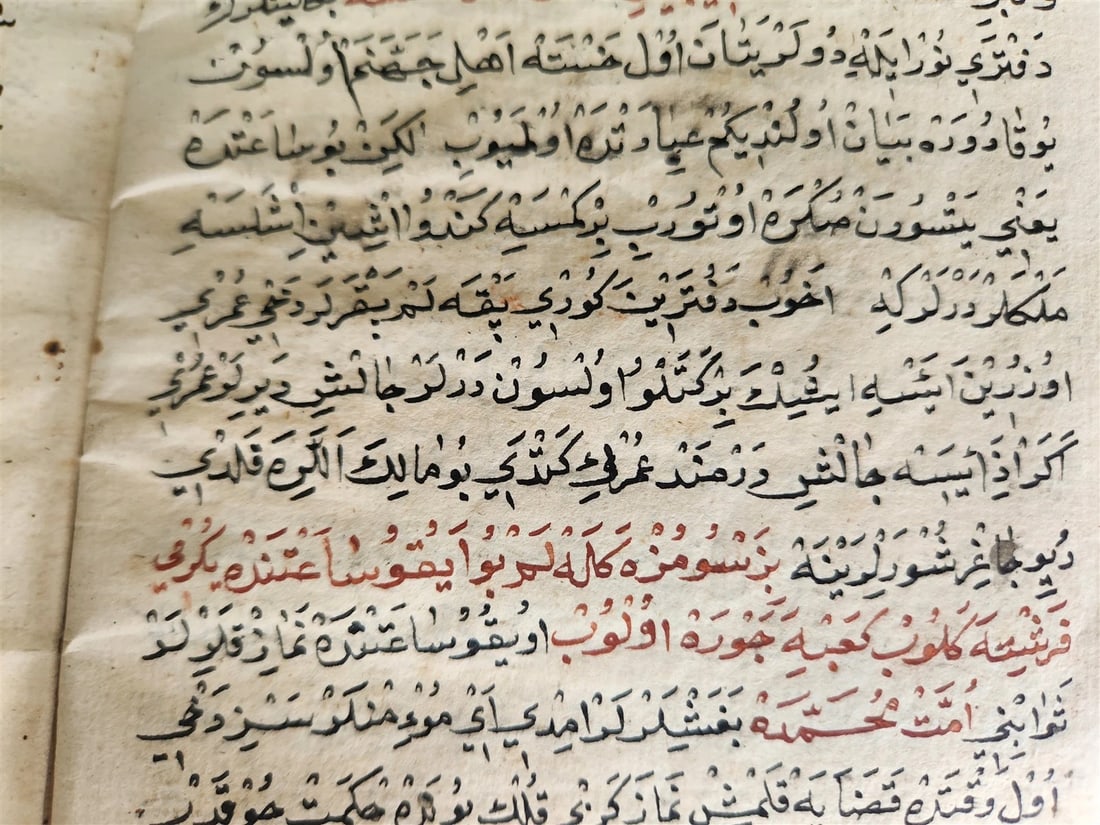 دَفْتَرَي نُورْ اِيلَهِ دُولَرْ يَتَانَ اُولْ خَسْتَهْ اَهْلِ جَهَنَّمْ اُولْسُونْ
يُوقَارُودَهْ بَيَانْ اُولُنْدِيكُمْ عِبَادَتْدَهْ اُولْمَيُوبْ لٰكِنْ بُو سَاعَتْدَهْ
يَعْنِي يَتْسُودَنْ صُكْرَهْ اُوتُورُبْ بِرْ كِمْسَهِ كَنْدُو اِشِينْ اِشْلَسَهِ
مَلَكْلَرْ دَرْلَرْ كِهْ اَخُوبْ دَفْتَرِينَ كُورَيْ يَقَهْ لَمْ بَقَرْلَرْ دَخِي عُمْرِي
اُوزْرِينَ اَيْسَهِ اِيشِكْ بَرَكَتْلُو اُولْسُونْ دَرْلَرْ چَالِشْ دِيرْلَرْ عُمْرِي
اَكَرْ اَزْ اَيْسَهْ چَالِشْ دَرْمَنْدْ عُمْرِكْ كَتْدِي بُو مَالِكْ اَللَّرَهْ قَالْدِي
دِيُو چَاغْرِشُورْلَرْ يِنَهْ بِزْ سُوزُمُزَهْ كَلَهْ لِمْ بُو اُيْقُو سَاعَتِنْدَهْ يِكِرْمِي
فَرِشْتَهَ كَلُوبْ كَعْبَهِ چَوْرَهْ اُولُوبْ اُويْقُو سَاعَتِنْدَهْ نَمَازْ قِلَرْلَرْ
ثَوَابْنِي اُمَّتْ مُحَمَّدَهْ بَغِشْلَرْلَرْ اِمْدِي اَيْ مُؤْمِنْلَرْ سِزْ دَخِي
اُولْ وَقْتِدَهْ قَضَايَهْ قَلْمِشْ نَمَازْ كَزِي قِلُكْ بُونْدَهْ حِكْمَتْ چُوقْدُرْ